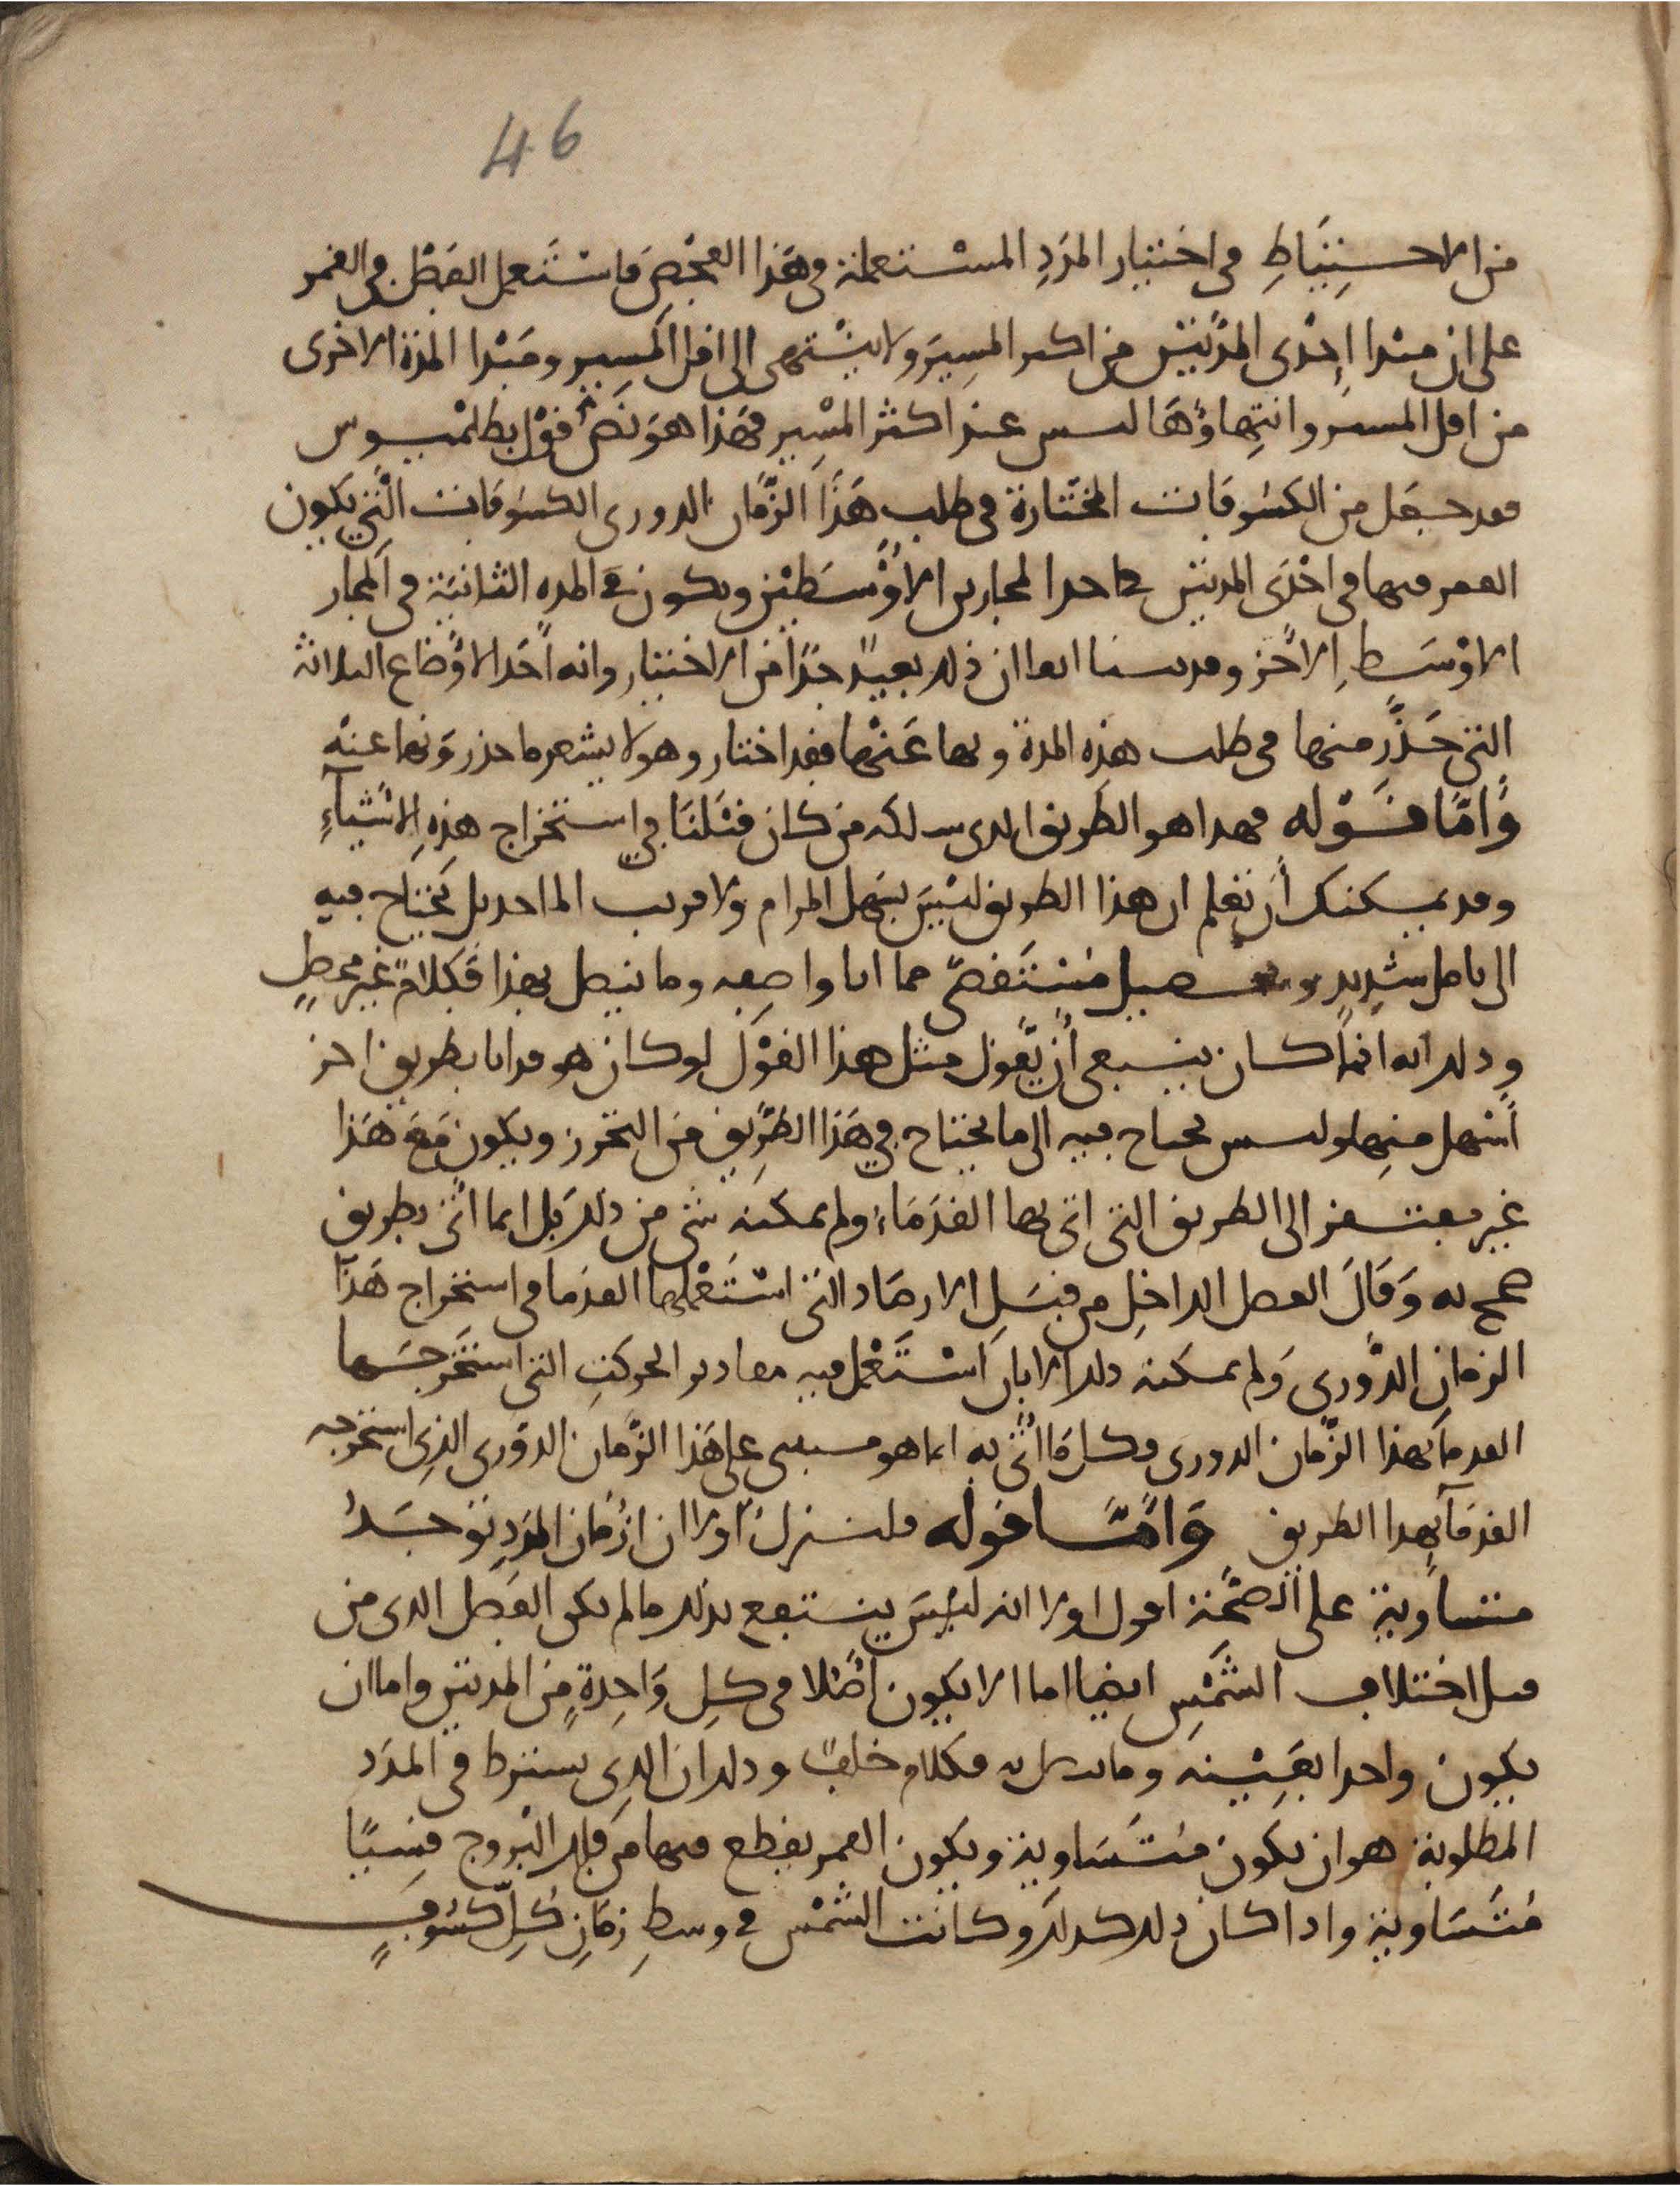 46
من الاحتياط في اختيار المدد المستعملة في هذا الفحص فاستعمل الفضل في القمر
على ان مبدا احدى المدتين من اكبر المسير ولا ينتهي الى اقل المسير ومبدا المدة الاخرى
من اقل المسير وانتهاؤها ليس عند اكثر المسير فهذا هو نص قول بطلميوس
فقد جعل من الكسوفات المختارة في طلب هذا الزمان الدوري الكسوفات التي يكون
القمر فيها في احدى المدتين في احد المجازين الاوسطين ويكون في المده الثانية في المجاز
الاوسط الاخر وقد بينا انفا ان ذلك بعيد جدا من الاختيار وانه احد الاوضاع الثلاثة
التي حذر منها في طلب هذه المدة ونها عنها فقد اختار وهو لا يشعر ما حذر ونها عنه
واما قوله فهذا هو الطريق الذي سلكه من كان قبلنا في استخراج هذه الاشياء
وقد يمكنك أن تعلم ان هذا الطريق ليس بسهل المرام ولا قريب الماخذ بل يحتاج فيه
الى تامل شديد مستقصى مما انا واصفه وما يتصل بهذا فكلام غير محصل
وذلك انه انما كان ينبغي أن يقول مثل هذا القول لو كان هو قد اتا بطريق اخر
أسهل منها وليس يحتاج فيه الى ما يحتاج في هذا الطريق من التحرز ويكون مع هذا
غير مفتقر الى الطريق التي اتى بها القدماء ولم يمكنه شي من ذلك بل انما اتى بطريق
صحح به وقال الفصل الداخل من قبل الارصاد التي استعملها القدما في استخراج هذا
الزمان الدوري ولم يمكنه ذلك الا بان استعمل فيه مقادير الحركت التي استخرجها
القدما بهذا الزمان الدوري فكل ما اتى به انما هو مبني على هذا الزمان الدوري الذي استخرجه
القدمآ بهذا الطريق وأما قوله فلننزل اولا ان ازمان المدد توجد
متساوية على الصحة اقول اولا انه ليس ينتفع بذلك ما لم يكن الفضل الذي من
قبل اختلاف الشمس ايضا اما الا يكون اصلا في كل واحدة من المدتين واما ان
يكون واحدا بعينه فكلام خلف وذلك ان الذي يشترط في المدد
المطلوبة هو ان يكون متساوية ويكون القمر يقطع فيها من فلك البروج قسيا
متساوية واذا كان ذلك كذلك وكانت الشمس في وسط زمان كل كسوف